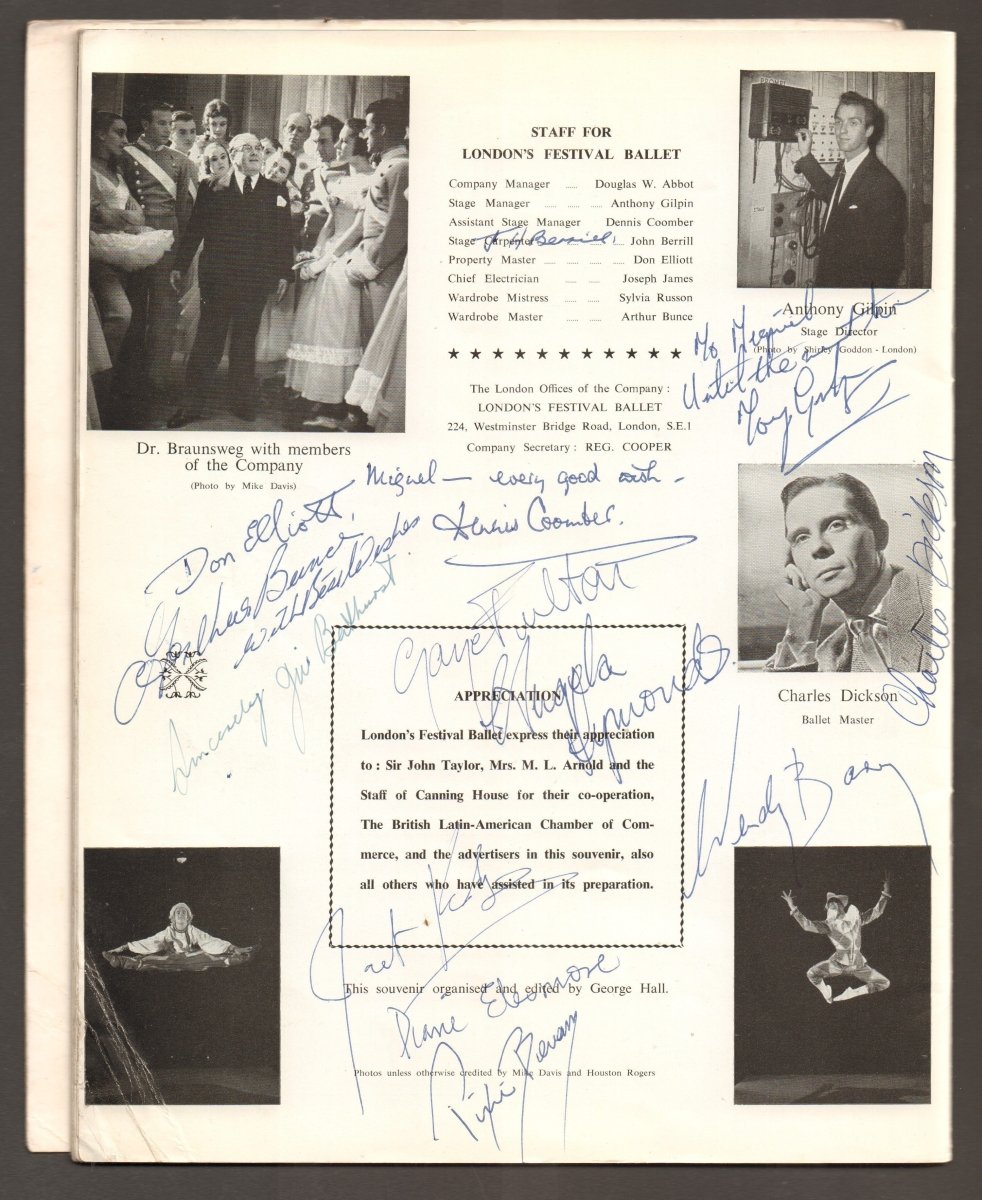 STAFF FOR
LONDON'S FESTIVAL BALLET
Company Manager ...... Douglas W. Abbot
Stage Manager ...... ...... ...... Anthony Gilpin
Assistant Stage Manager Dennis Coomber
Stage Carpenter ...... John Berrill
J H Berrill
Property Master ...... ...... ...... ...... Don Elliott
Chief Electrician ...... ...... Joseph James
Wardrobe Mistress ...... ...... Sylvia Russon
Wardrobe Master ...... ...... Arthur Bunce
★ ★ ★ ★ ★ ★ ★ ★ ★ ★ ★
The London Offices of the Company :
LONDON'S FESTIVAL BALLET
224, Westminster Bridge Road, London, S.E.1
Company Secretary : REG. COOPER
Dr. Braunsweg with members
of the Company
(Photo by Mike Davis)
Anthony Gilpin
Stage Director
(Photo by Shirley Goddon - London)
To Miguel
Until the
Tony
Miguel — every good wish -
Dennis Coomber.
Don Elliott,
Arthur Bunce
with Best Wishes
Sincerely
Gaye Fulton
Angela
Symonds.
Charles Dickson
Charles Dickson
Ballet Master
Wendy Barry
APPRECIATION
London's Festival Ballet express their appreciation
to : Sir John Taylor, Mrs. M. L. Arnold and the
Staff of Canning House for their co-operation,
The British Latin-American Chamber of Com-
merce, and the advertisers in this souvenir, also
all others who have assisted in its preparation.
Janet
This souvenir organised and edited by George Hall.
Diane
Photos unless otherwise credited by Mike Davis and Houston Rogers
Bevan